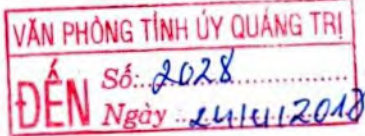 VĂN PHÒNG TỈNH ỦY QUẢNG TRỊ
ĐẾN
Số: 2028
Ngày 24/4/2018